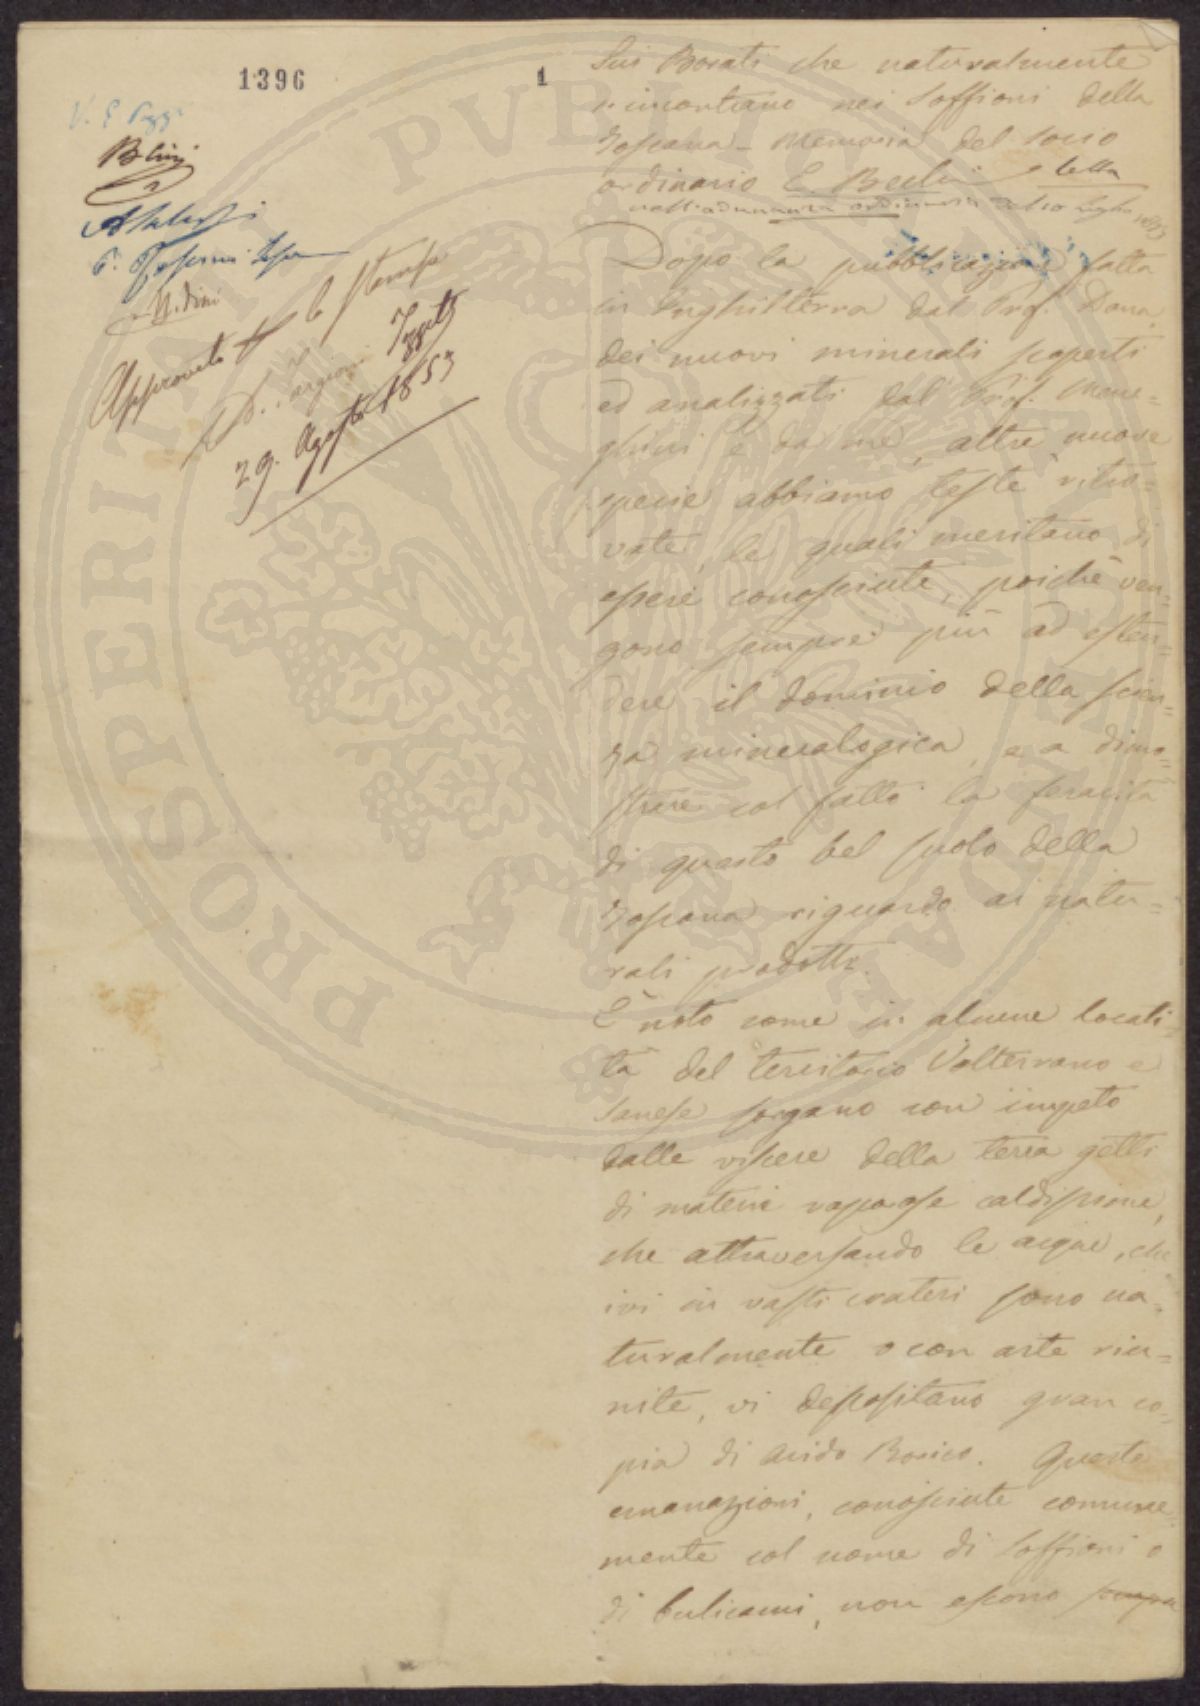 1396
1
V. E. Pozzi
Approvato per la stampa
A. Targioni Tozzetti
29. Agosto 1853
Sui Borati che naturalmente
rincontrano nei Soffioni della
Toscana - Memoria del Socio
ordinario E. Bechi letta
nell'adunanza ordinaria del 10 Luglio 1853
Dopo la pubblicazione fatta
in Inghilterra dal Prof. Dana,
dei nuovi minerali scoperti
ed analizzati dal Prof. Mene=
ghini e da me, altre nuove
specie abbiamo testè ritro=
vate, le quali meritano di
essere conosciute, poichè ven=
gono sempre più ad esten=
dere il dominio della scien=
za mineralogica, e a dimo=
strare col fatto la feracità
di questo bel suolo della
Toscana riguardo ai natu=
rali prodotti.
È noto come in alcune locali=
tà del territorio Volterrano e
Sanese sorgano con impeto
dalle viscere della terra getti
di materie vaporose caldissime,
che attraversando le acque, che
ivi in vasti crateri sono na=
turalmente o con arte riu=
nite, vi depositano gran co=
pia di Acido Borico. Queste
emanazioni, conosciute comune=
mente col nome di Soffioni o
di bulicami, non escono sempre